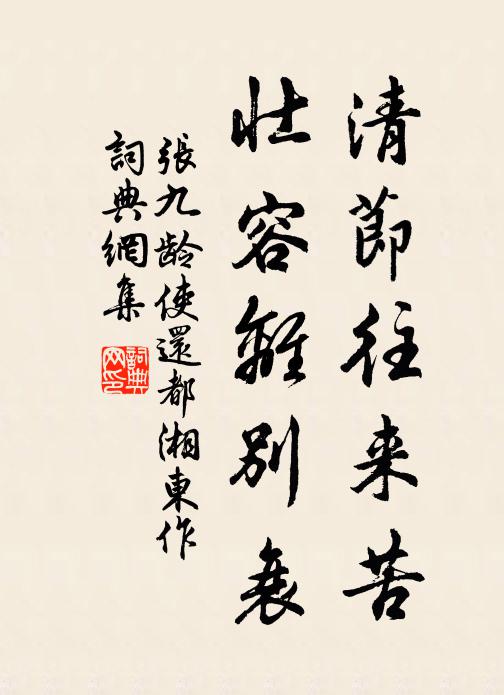 清節往来苦
壮容離別衰
張九龄使還都湘東作
詞典網集
詞典
网印